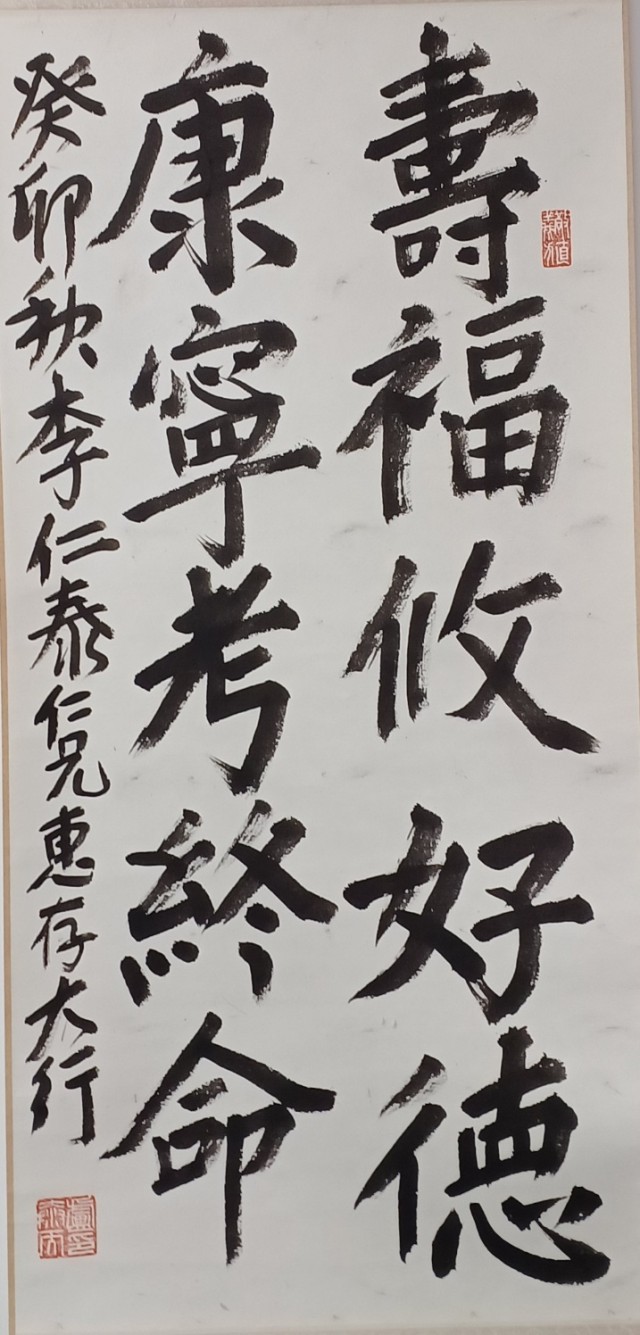 壽福攸好德
康寧考終命
癸卯秋李仁泰仁兄惠存大行